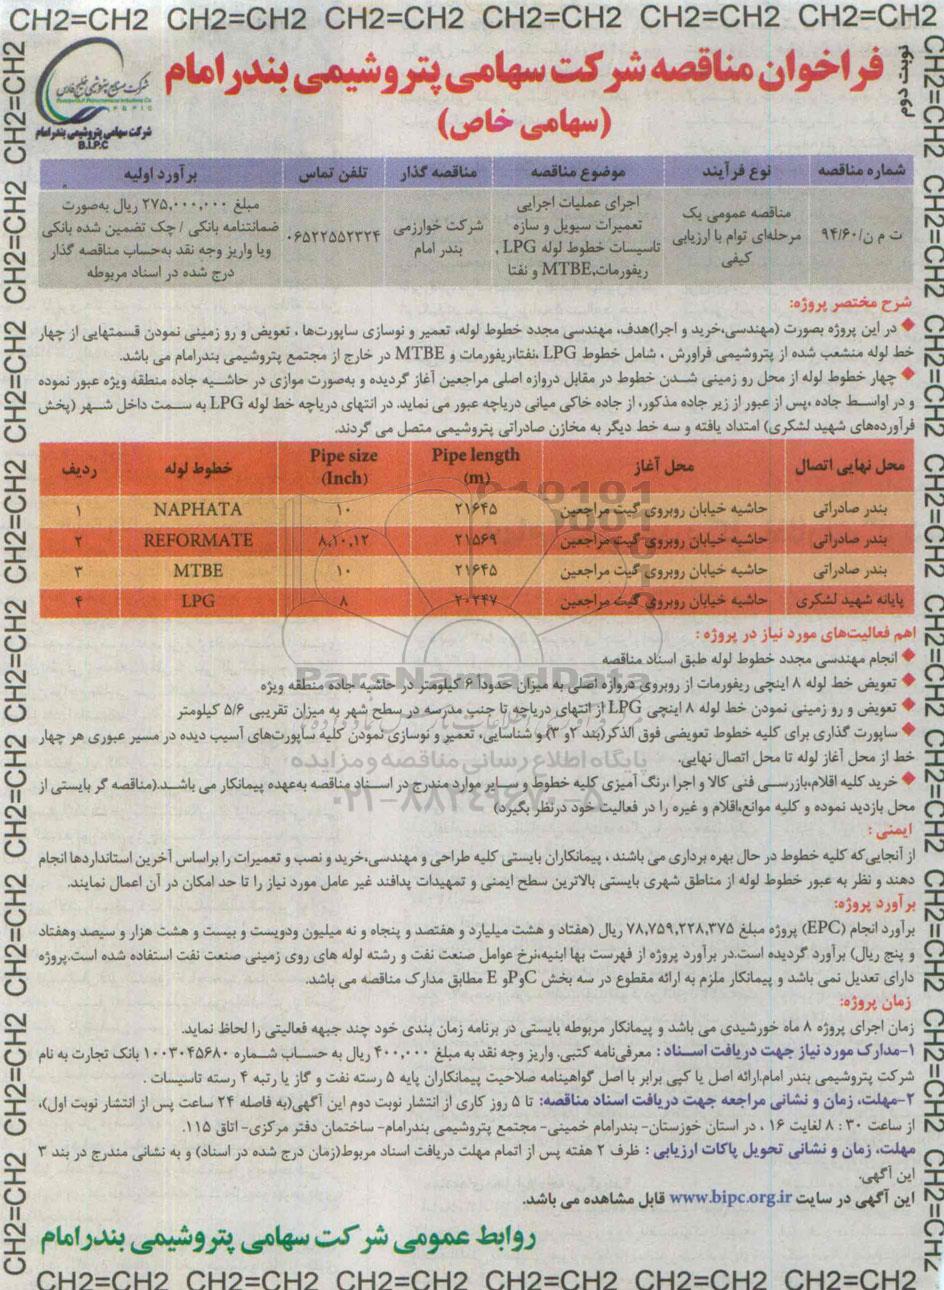 CH2=CH2 CH2=CH2 CH2=CH2 CH2=CH2 CH2=CH2 CH2=CH2
نوبت دوم
فراخوان مناقصه شرکت سهامی پتروشیمی بندرامام
(سهامی خاص)
شرکت صنایع پتروشیمی خلیج فارس
P G P I C
شرکت سهامی پتروشیمی بندرامام
B.I.P.C
شماره مناقصه | نوع فرآیند | موضوع مناقصه | مناقصه گذار | تلفن تماس | برآورد اولیه
ت م ن/۹۴/۶۰ | مناقصه عمومی یک مرحله‌ای توام با ارزیابی کیفی | اجرای عملیات اجرایی تعمیرات سیویل و سازه تاسیسات خطوط لوله LPG , ریفورمات,MTBE و نفتا | شرکت خوارزمی بندر امام | ۰۶۵۲۲۵۵۲۳۲۴ | مبلغ ۲۷۵,۰۰۰,۰۰۰ ریال به‌صورت ضمانتنامه بانکی / چک تضمین شده بانکی ویا واریز وجه نقد به‌حساب مناقصه گذار درج شده در اسناد مربوطه
شرح مختصر پروژه:
◆ در این پروژه بصورت (مهندسی،خرید و اجرا)هدف، مهندسی مجدد خطوط لوله، تعمیر و نوسازی ساپورت‌ها ، تعویض و رو زمینی نمودن قسمتهایی از چهار
خط لوله منشعب شده از پتروشیمی فراورش ، شامل خطوط LPG ،نفتا،ریفورمات و MTBE در خارج از مجتمع پتروشیمی بندرامام می باشد.
◆ چهار خطوط لوله از محل رو زمینی شدن خطوط در مقابل دروازه اصلی مراجعین آغاز گردیده و به‌صورت موازی در حاشیه جاده منطقه ویژه عبور نموده
و در اواسط جاده ،پس از عبور از زیر جاده مذکور، از جاده خاکی میانی دریاچه عبور می نماید. در انتهای دریاچه خط لوله LPG به سمت داخل شهر (پخش
فرآورده‌های شهید لشکری) امتداد یافته و سه خط دیگر به مخازن صادراتی پتروشیمی متصل می گردند.
محل نهایی اتصال | محل آغاز | Pipe length (m) | Pipe size (Inch) | خطوط لوله | ردیف
بندر صادراتی | حاشیه خیابان روبروی گیت مراجعین | ۲۱۶۴۵ | ۱۰ | NAPHATA | ۱
بندر صادراتی | حاشیه خیابان روبروی گیت مراجعین | ۲۱۵۶۹ | ۸,۱۰,۱۲ | REFORMATE | ۲
بندر صادراتی | حاشیه خیابان روبروی گیت مراجعین | ۲۱۶۴۵ | ۱۰ | MTBE | ۳
پایانه شهید لشکری | حاشیه خیابان روبروی گیت مراجعین | ۲۰۲۴۷ | ۸ | LPG | ۴
اهم فعالیت‌های مورد نیاز در پروژه :
◆ انجام مهندسی مجدد خطوط لوله طبق اسناد مناقصه
◆ تعویض خط لوله ۸ اینچی ریفورمات از روبروی دروازه اصلی به میزان حدودا ۶ کیلومتر در حاشیه جاده منطقه ویژه
◆ تعویض و رو زمینی نمودن خط لوله ۸ اینچی LPG از انتهای دریاچه تا جنب مدرسه در سطح شهر به میزان تقریبی ۵/۶ کیلومتر
◆ ساپورت گذاری برای کلیه خطوط تعویضی فوق الذکر(بند ۲و ۳) و شناسایی، تعمیر و نوسازی نمودن کلیه ساپورت‌های آسیب دیده در مسیر عبوری هر چهار
خط از محل آغاز لوله تا محل اتصال نهایی.
◆ خرید کلیه اقلام،بازرسی فنی کالا و اجرا ،رنگ آمیزی کلیه خطوط و سایر موارد مندرج در اسناد مناقصه به‌عهده پیمانکار می باشد.(مناقصه گر بایستی از
محل بازدید نموده و کلیه موانع،اقلام و غیره را در فعالیت خود درنظر بگیرد)
ParsNamadData
پایگاه اطلاع رسانی مناقصه و مزایده
ایمنی :
از آنجایی‌که کلیه خطوط در حال بهره برداری می باشند ، پیمانکاران بایستی کلیه طراحی و مهندسی،خرید و نصب و تعمیرات را براساس آخرین استانداردها انجام
دهند و نظر به عبور خطوط لوله از مناطق شهری بایستی بالاترین سطح ایمنی و تمهیدات پدافند غیر عامل مورد نیاز را تا حد امکان در آن اعمال نمایند.
برآورد پروژه:
برآورد انجام (EPC) پروژه مبلغ ۷۸,۷۵۹,۲۲۸,۳۷۵ ریال (هفتاد و هشت میلیارد و هفتصد و پنجاه و نه میلیون ودویست و بیست و هشت هزار و سیصد وهفتاد
و پنج ریال) برآورد گردیده است.در برآورد پروژه از فهرست بها ابنیه،نرخ عوامل صنعت نفت و رشته لوله های روی زمینی صنعت نفت استفاده شده است.پروژه
دارای تعدیل نمی باشد و پیمانکار ملزم به ارائه مقطوع در سه بخش PوC و E مطابق مدارک مناقصه می باشد.
زمان پروژه:
زمان اجرای پروژه ۸ ماه خورشیدی می باشد و پیمانکار مربوطه بایستی در برنامه زمان بندی خود چند جبهه فعالیتی را لحاظ نماید.
۱-مدارک مورد نیاز جهت دریافت اسناد : معرفی‌نامه کتبی، واریز وجه نقد به مبلغ ۴۰۰,۰۰۰ ریال به حساب شماره ۱۰۰۳۰۴۵۶۸۰ بانک تجارت به نام
شرکت پتروشیمی بندر امام.ارائه اصل یا کپی برابر با اصل گواهینامه صلاحیت پیمانکاران پایه ۵ رسته نفت و گاز یا رتبه ۴ رسته تاسیسات .
۲-مهلت، زمان و نشانی مراجعه جهت دریافت اسناد مناقصه: تا ۵ روز کاری از انتشار نوبت دوم این آگهی(به فاصله ۲۴ ساعت پس از انتشار نوبت اول)،
از ساعت ۳۰ : ۸ لغایت ۱۶ ، در استان خوزستان- بندرامام خمینی- مجتمع پتروشیمی بندرامام- ساختمان دفتر مرکزی- اتاق ۱۱۵.
مهلت، زمان و نشانی تحویل پاکات ارزیابی : ظرف ۲ هفته پس از اتمام مهلت دریافت اسناد مربوط(زمان درج شده در اسناد) و به نشانی مندرج در بند ۳
این آگهی.
این آگهی در سایت www.bipc.org.ir قابل مشاهده می باشد.
روابط عمومی شرکت سهامی پتروشیمی بندرامام
CH2=CH2 CH2=CH2 CH2=CH2 CH2=CH2 CH2=CH2 CH2=CH2